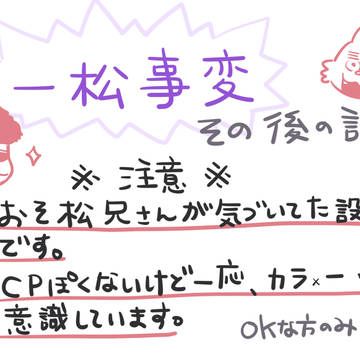 一松事変
その後の話
※ 注意 ※
おそ松兄さんが気づいてた設
です。
CPぽくないけど一応、カラ×一
意識しています。
OKな方のみ